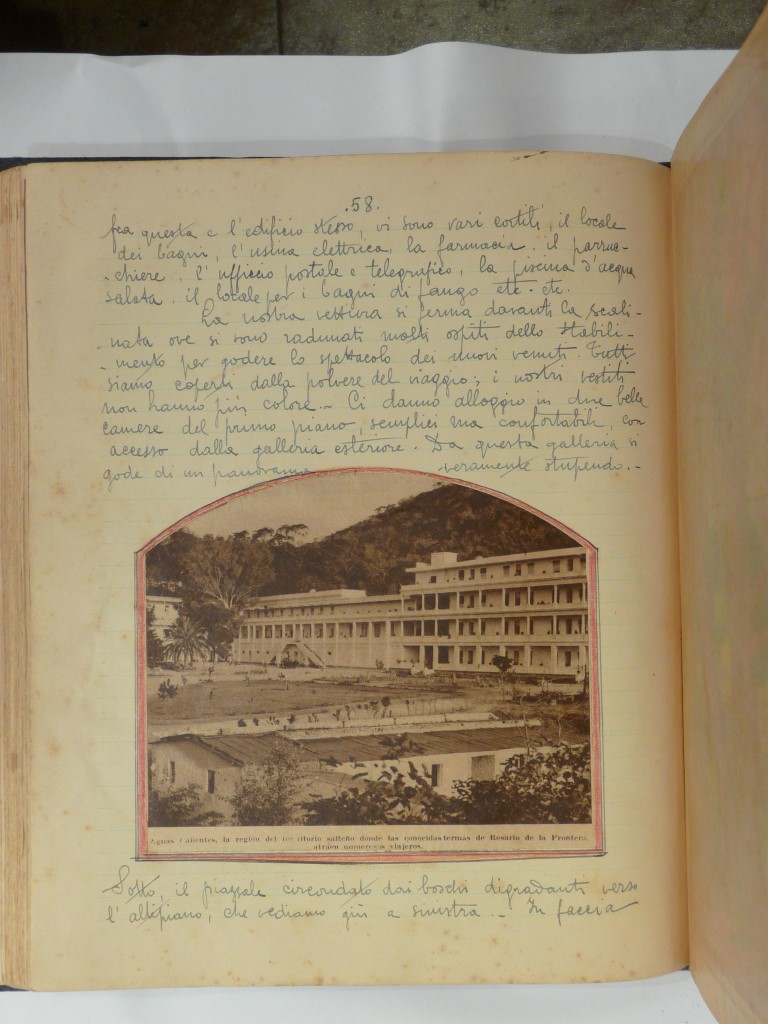 .58.
fra questa e l'edificio stesso, vi sono vari cortili, il locale
dei bagni, l'usina elettrica, la farmacia, il parruc-
-chiere, l'ufficio postale e telegrafico, la piscina d'acqua
salata, il locale per i bagni di fango etc. etc.
La nostra vettura si ferma davanti la scali-
-nata ove si sono radunati molti ospiti dello stabili-
-mento per godere lo spettacolo dei nuovi venuti. Tutti
siamo coperti dalla polvere del viaggio; i nostri vestiti
non hanno più colore.- Ci danno alloggio in due belle
camere del primo piano, semplici ma confortabili, con
accesso dalla galleria esteriore. Da questa galleria si
gode di un panorama veramente stupendo.-
Aguas Calientes, la región del territorio salteño donde las conocidas termas de Rosario de la Frontera,
atraen numerosos viajeros.
Sotto, il piazzale circondato dai boschi digradanti verso
l'altipiano, che vediamo giù a sinistra.- In faccia